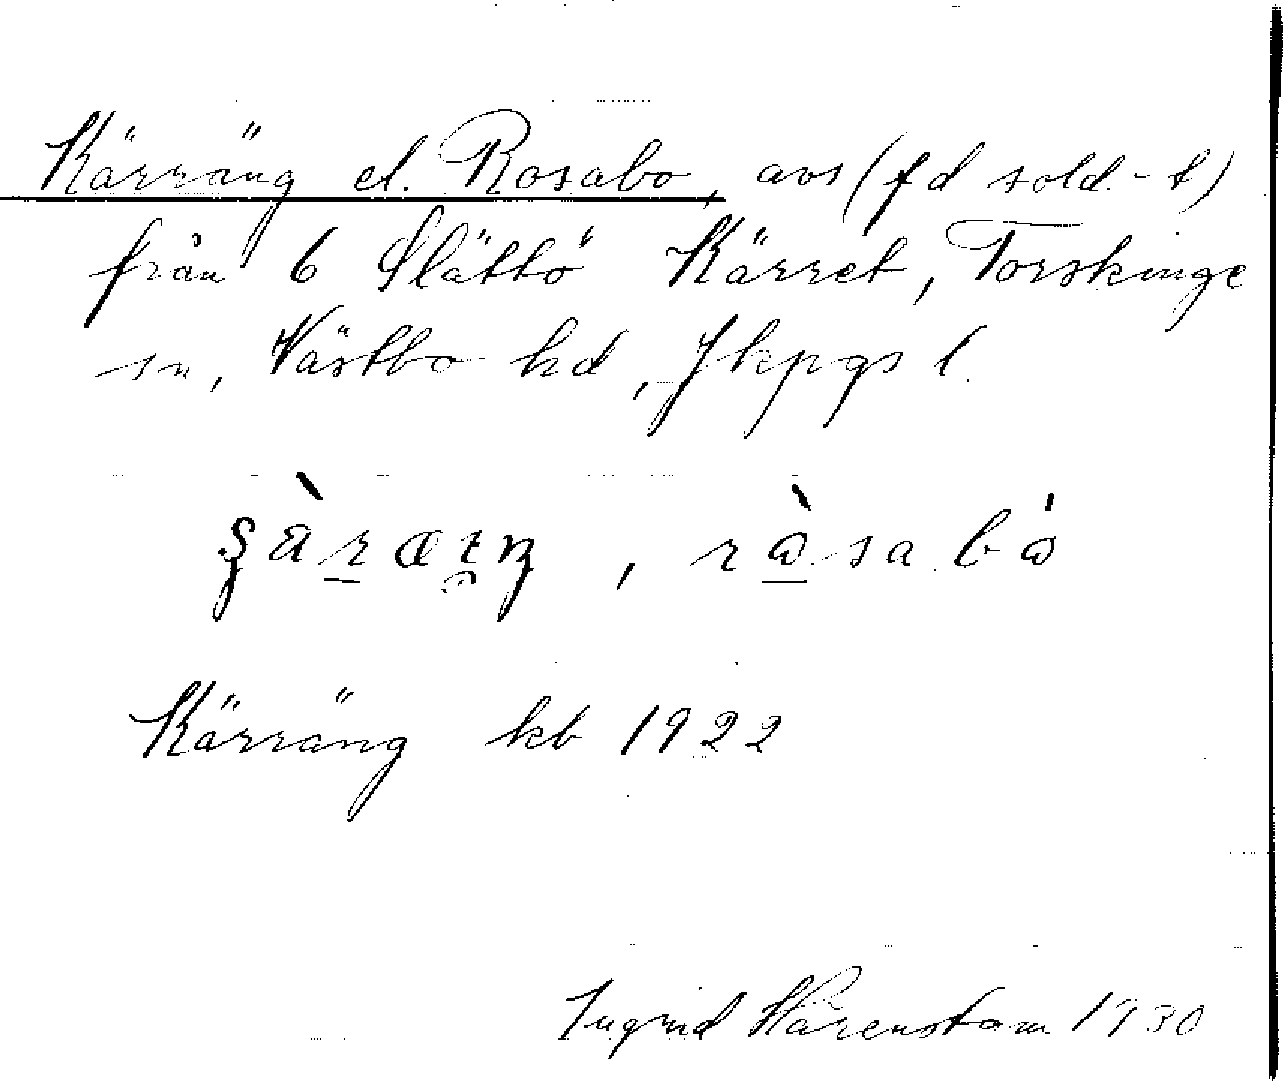 Kärräng el. Rosabo, avs (fd sold.-t)
från 6 Slättö Kärret, Torskinge
sn, Västbo hd, Jkpgs l.
Kärräng kb 1922
Ingrid Härenstam 1930